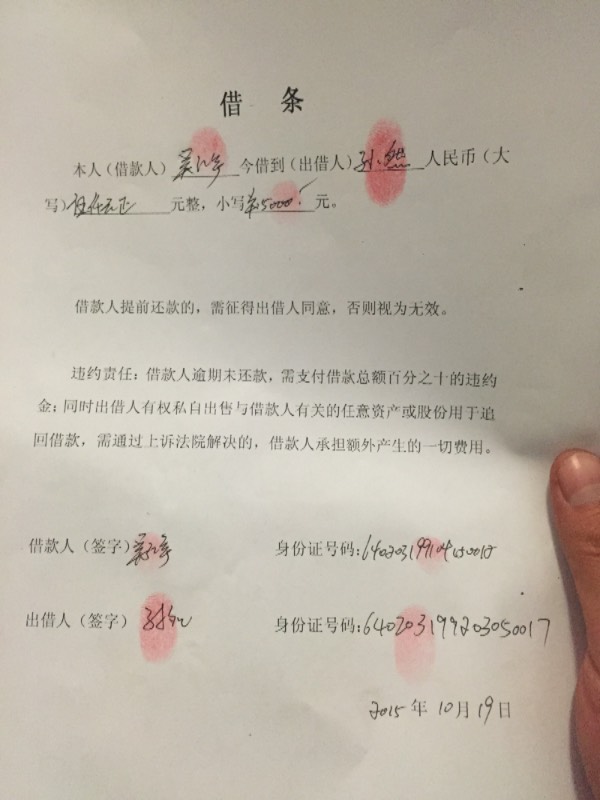 借 条
本人（借款人）吴 今借到（出借人）孙然 人民币（大
写）伍仟元正 元整，小写￥5000 元。
借款人提前还款的，需征得出借人同意，否则视为无效。
违约责任：借款人逾期未还款，需支付借款总额百分之十的违约
金；同时出借人有权私自出售与借款人有关的任意资产或股份用于追
回借款，需通过上诉法院解决的，借款人承担额外产生的一切费用。
借款人（签字）吴 身份证号码：
出借人（签字） 身份证号码：640203199203050017
2015年10月19日